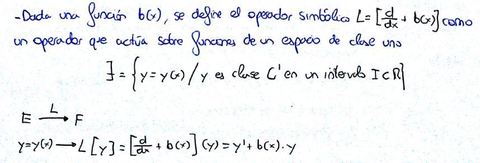 -Dada una función b(x), se define el operador simbólico L=[d/dx + b(x)] como
un operador que actúa sobre funciones de un espacio de clase uno
F = {y=y(x) / y es clase C' en un intervalo I⊂R}
E —L→ F
y=y(x) → L[y]=[d/dx + b(x)](y)=y'+b(x)·y